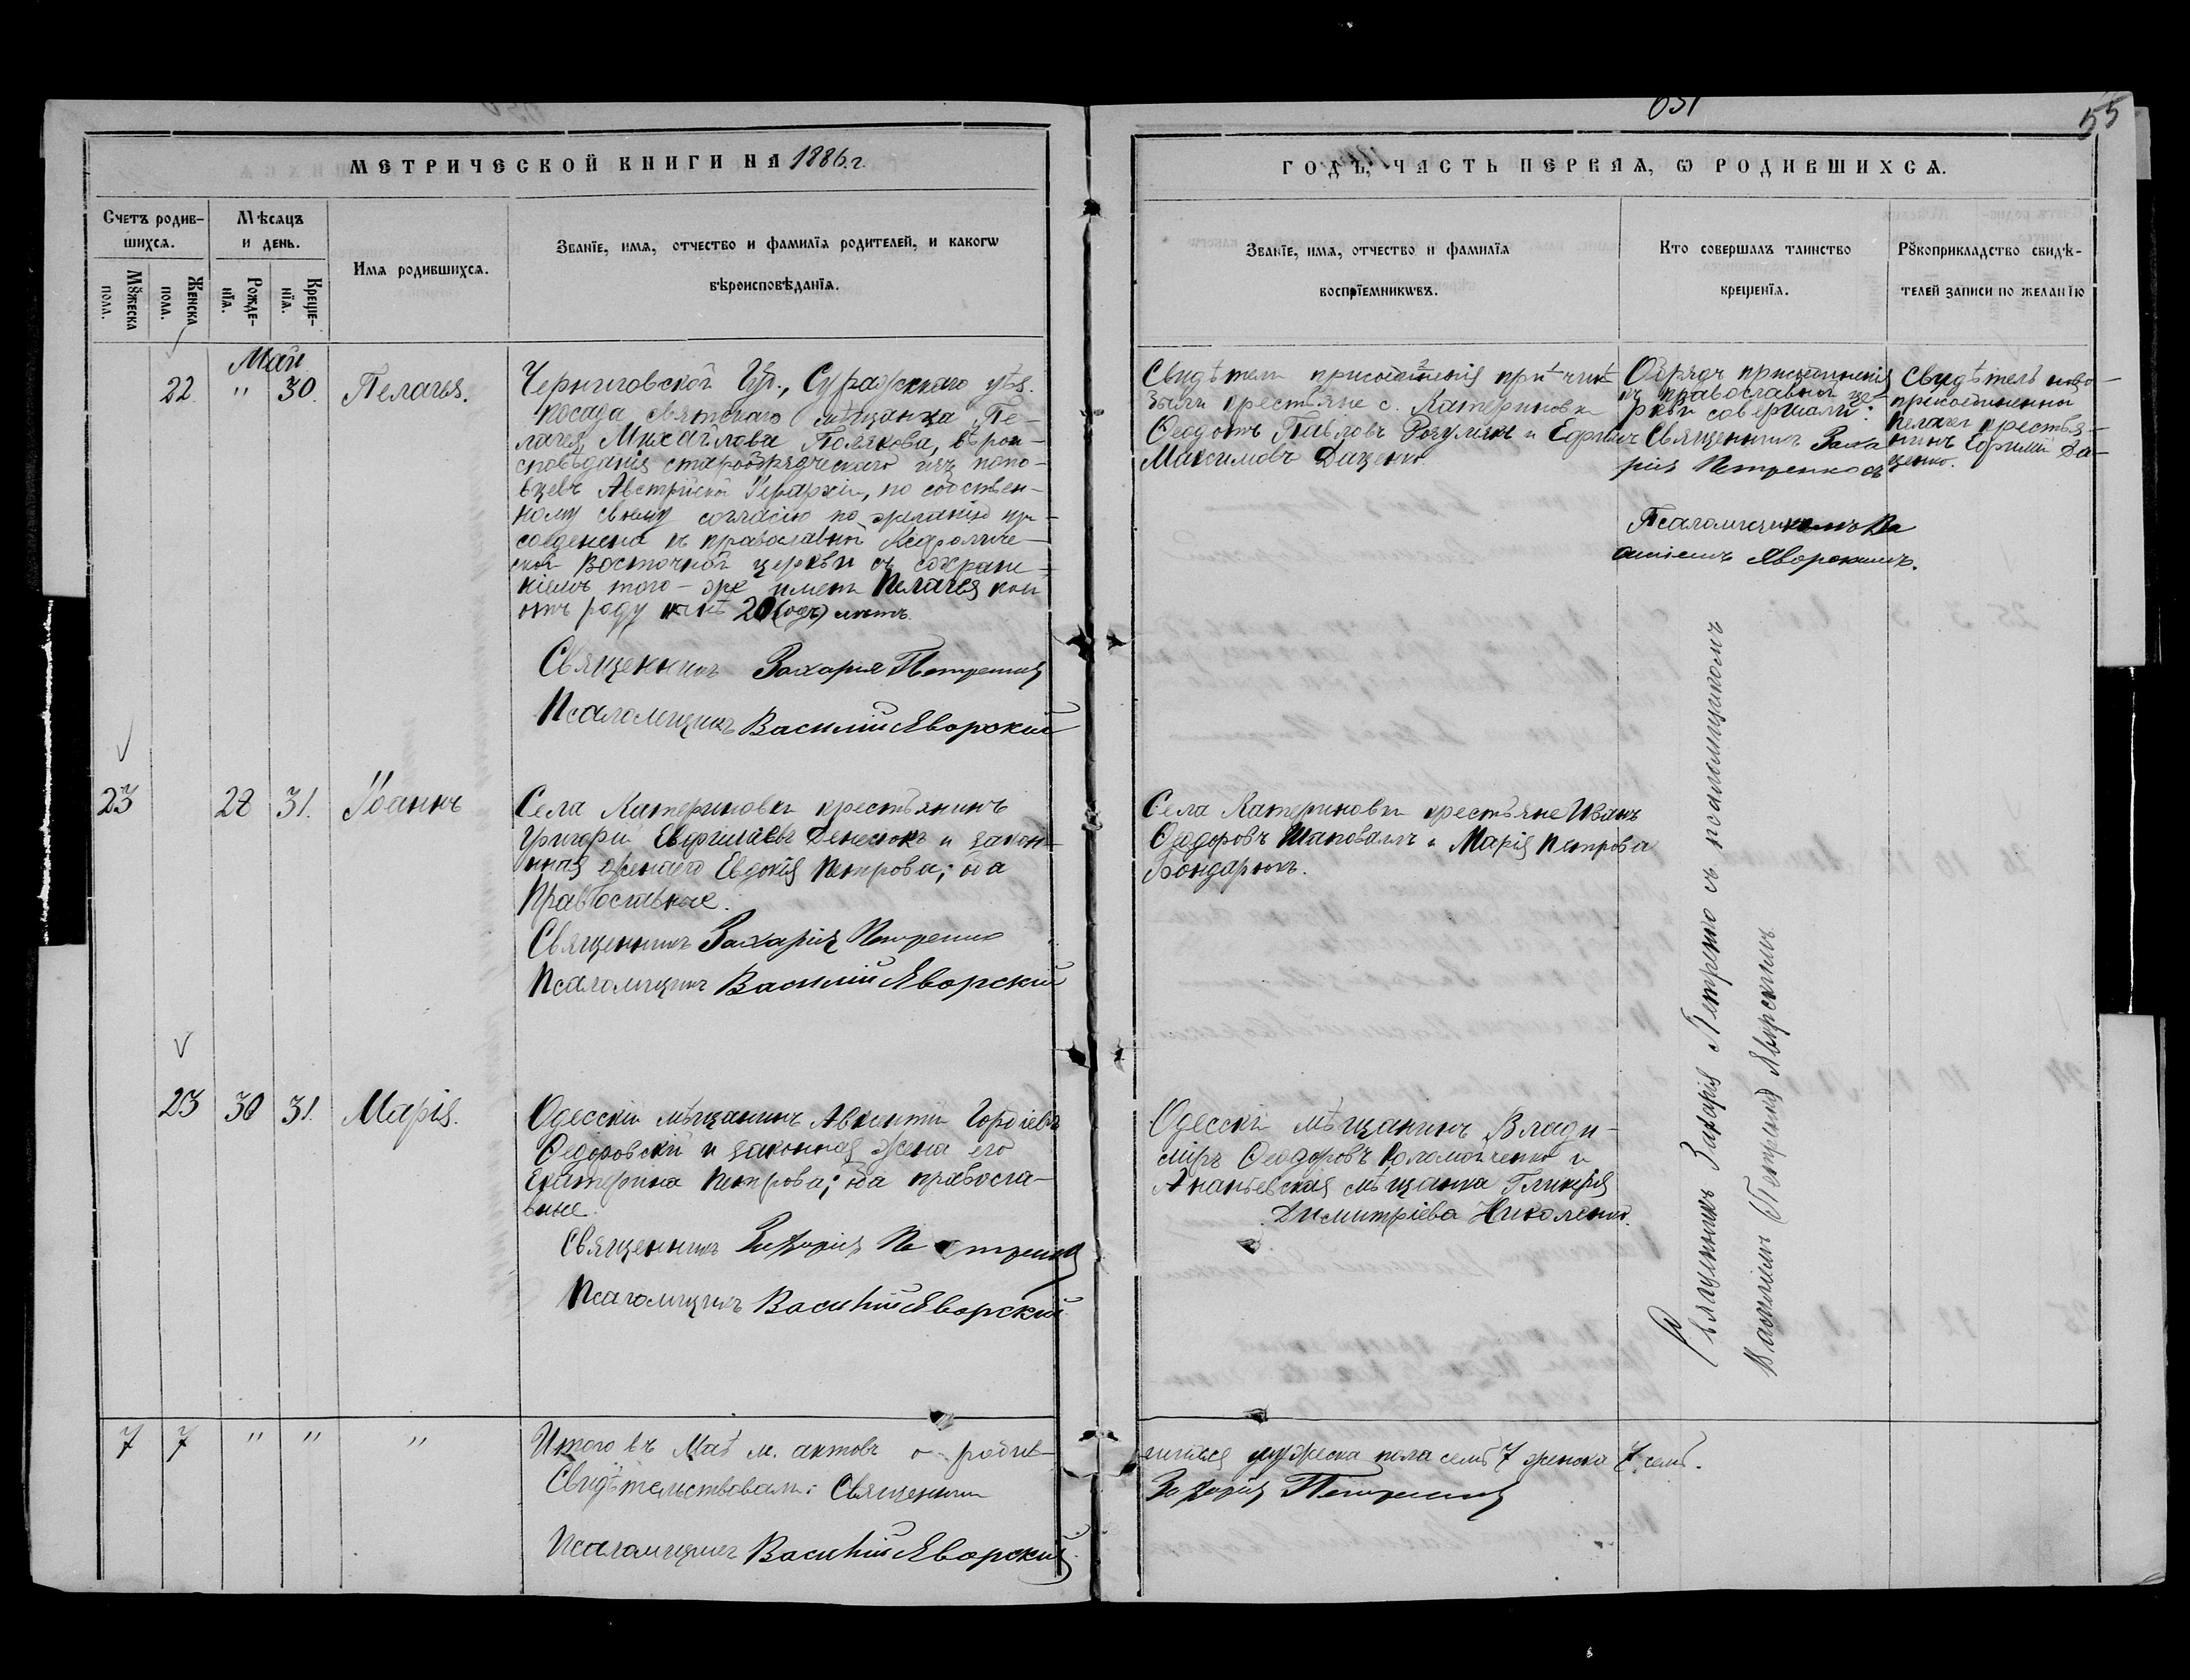 651
55
МЕТРИЧЕСКОЙ КНИГИ НА 1886 г.
ГОДЪ, ЧАСТЬ ПЕРВАЯ, Ѡ РОДИВШИХСѦ.
Счетъ родив-
шихсѧ.
Мѣсѧцъ
и день.
Мꙋжеска
пола.
Женска
пола.
Рожде-
нїѧ.
Креще-
нїѧ.
Имѧ родившихсѧ.
Званїе, имѧ, отчество и фамилїѧ родителей, и какогѡ
вѣроисповѣданїѧ.
Званїе, имѧ, отчество и фамилїѧ
воспрїемникѡвъ.
Кто совершалъ таинство
крещенїѧ.
Рꙋкоприкладство свидѣ-
телей записи по желанїю
Май
22 " 30. Пелагія.
Черниговской Губ., Суражскаго уѣз.
посада святскаго мѣщанка Пе-
лагея Михайлова Полякова, вѣрои-
сповѣданія старообрядческаго изъ попо-
вцевъ Австрійской Іерархіи, по собствен-
ному своему согласію по желанію пр-
соеденена къ православной Каѳоличе-
ской Восточной церкви съ сохране-
ніемъ того-же имени Пелагея кой
отъ роду 20 лѣтъ.
Священникъ Захарія Петренко
Псаломщикъ Василій Яворский
Свидѣтели присоединенія при чинѣ
были крестьяне с. Катериновки
Ѳеодотъ Павловъ и Ефимъ
Максимовъ Даценко.
Обрядъ присоединенія
къ православной це-
ркви совершали:
Священникъ Заха
рія Петренко съ
Псаломщикомъ Ва
силіемъ Яворскимъ.
Свидѣтель ново-
присоединенной
Пелагеи крестья-
нинъ Ефимій Да-
ценко.
23 28 31. Іоаннъ
Села Катериновки крестьянинъ
Григорій Евфиміевъ Денесюкъ и закон-
ная жена его Евдокія Петрова; оба
Православные.
Священникъ Захарія Петренко
Псаломщикъ Василій Яворский
Села Катериновки крестьяне Иванъ
Ѳеодоровъ Шаповалъ и Марія Петрова
Бондарюкъ.
Священникъ Захарія Петренко съ псаломщикомъ
Василіемъ Яворскимъ
23 30 31. Марія.
Одесскій мѣщанинъ Авксентій Гордіевъ
Ѳедоровскій и законная жена его
Екатерина Петрова; оба правосла-
вные.
Священникъ Захарія Петренко
Псаломщикъ Василій Яворский
Одесскій мѣщанинъ Влади-
міръ Ѳеодоровъ Коломойченко и
Ананьевская мѣщанка Гликерія
Димитріева Николенко.
7 7 " " "
Итого въ Маѣ м. актовъ о родив-
шихся мужеска пола семь 7 женска 7 семь.
Свидѣтельствовали: Священникъ
Захарія Петренко
Псаломщикъ Василій Яворский